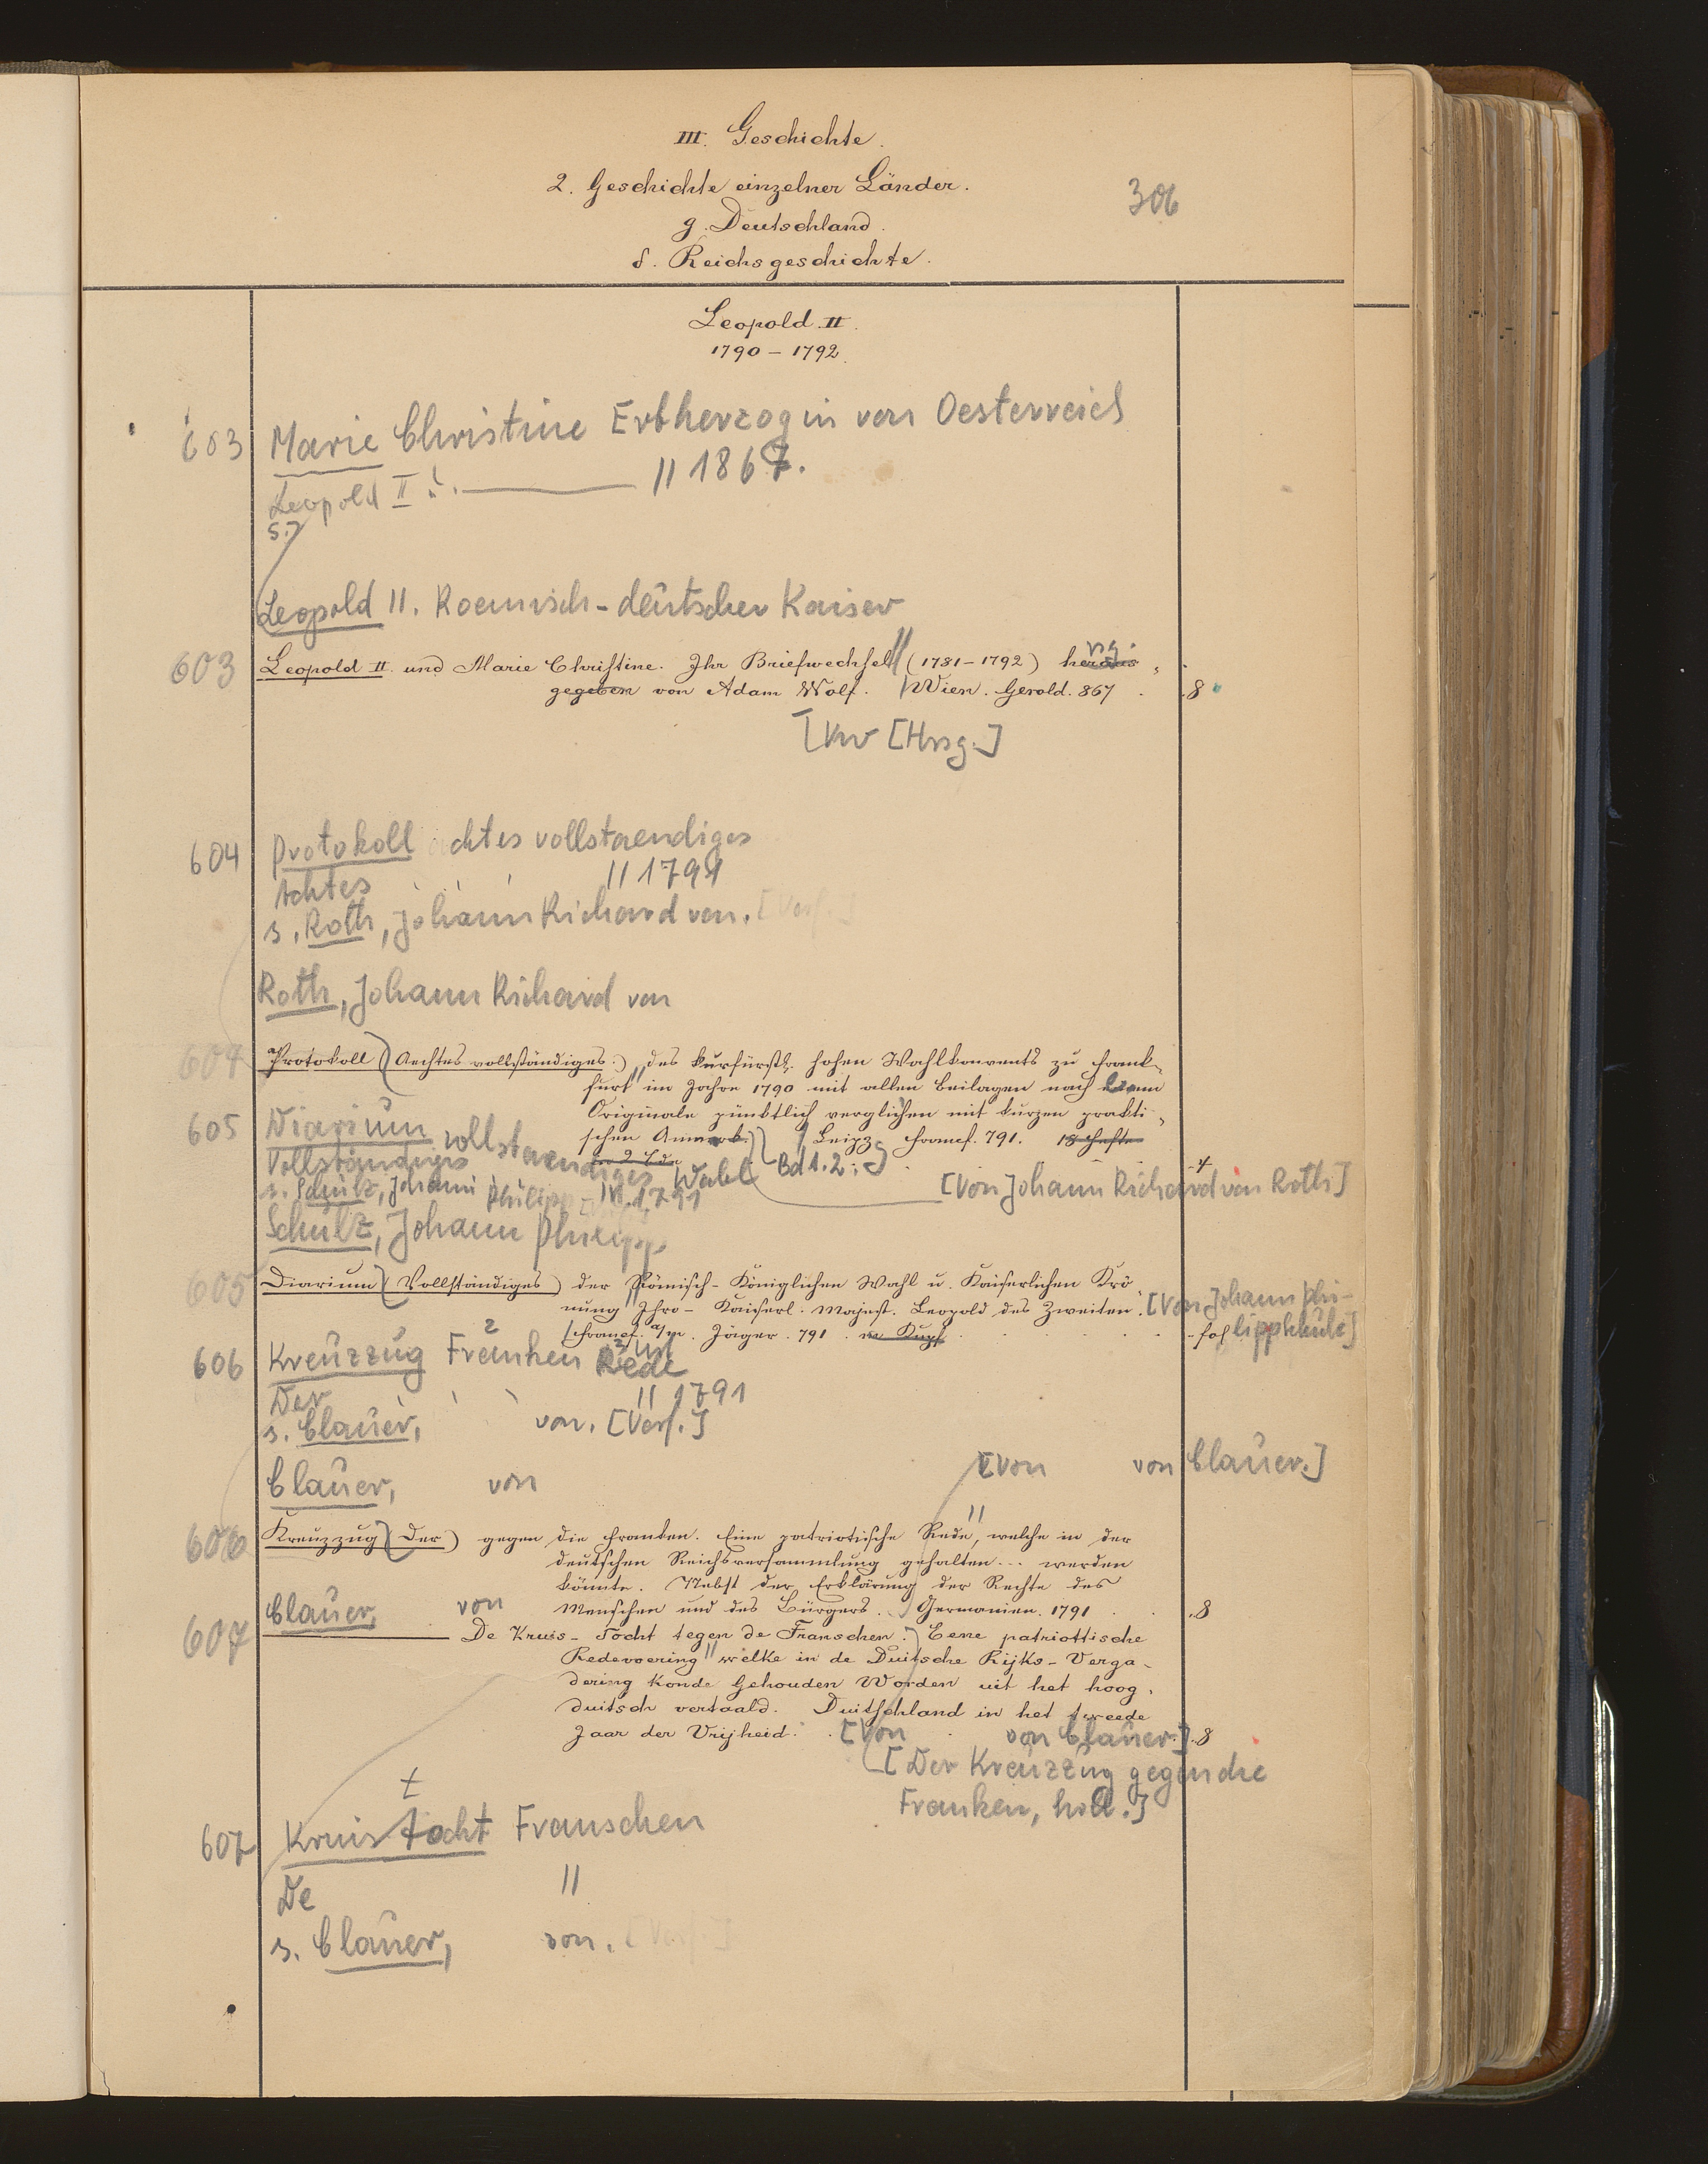 III. Geschichte.
2. Geschichte einzelner Länder.
306
g. Deutschland.
δ. Reichsgeschichte.
Leopold II.
1790 – 1792.
603 Marie Christine Erbherzogin von Oesterreich
Leopold II. // 1867.
s.
Leopold II. Roemisch-deutscher Kaiser
603 Leopold II. und Marie Christine. Ihr Briefwechsel // (1781–1792) heraus- rsg.
gegeben von Adam Wolf. Wien. Gerold. 867 . 8
[Kv [Hrsg.]
604 Protokoll achtes vollstaendiges
Achtes // 1791
s. Roth, Johann Richard von. [Verf.]
Roth, Johann Richard von
604 Protokoll (Aechtes vollständiges) des kurfürstl. hohen Wahlkonvents zu Frank-
furt im Jahre 1790 mit allen Beilagen nach dem
Originale pünktlich verglichen mit kurzen prakti-
605 Diarium vollstaendiges Wahl
schen Anmerk. Leipz. Francf. 791. 18 Hefte
in 2 Bde Bd 1.2.
Vollständiges
4
s. Schulz, Johann Philipp // 1791
[Von Johann Richard von Roth]
Schulz, Johann Philipp
605 Diarium (Vollständiges) der Römisch-Königlichen Wahl u. Kaiserlichen Krö-
nung Ihro-Kaiserl. Majest. Leopold des Zweiten. [Von Johann Phi-
Francf. a/m. Jäger. 791. m. Kupf. fol lipp
606 Kreuzzug Franken Rede
Der // 1791
s. Clauer, von. [Verf.]
Clauer, von
[Von von Clauer.]
606 Kreuzzug (Der) gegen die Franken. Eine patriotische Rede, // welche in der
deutschen Reichsversammlung gehalten... werden
könnte. Nebst der Erklärung der Rechte des
Clauer, von
Menschen und des Bürgers. Germanien. 1791 . 8
607 De Kruis-Tocht tegen de Franschen. Eene patriottische
Redevoering // welke in de Duitsche Rijks-Verga-
dering konde Gehouden Worden uit het hoog-
duitsch vertaald. Duitschland in het tweede
Jaar der Vrijheid. [Von von Clauer.] 8
[Der Kreuzzug gegen die
Franken, holl.]
t
607 Kruis tocht Franschen
De //
s. Clauer, von. [Verf.]